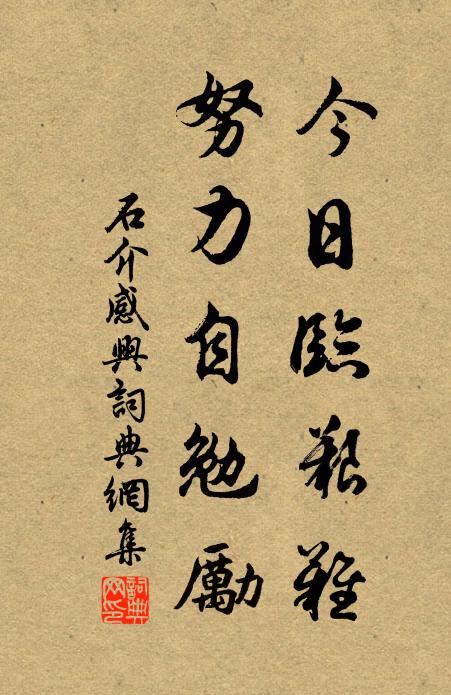 今日臨艱難
努力自勉勵
石介感興詞典網集
詞典网印